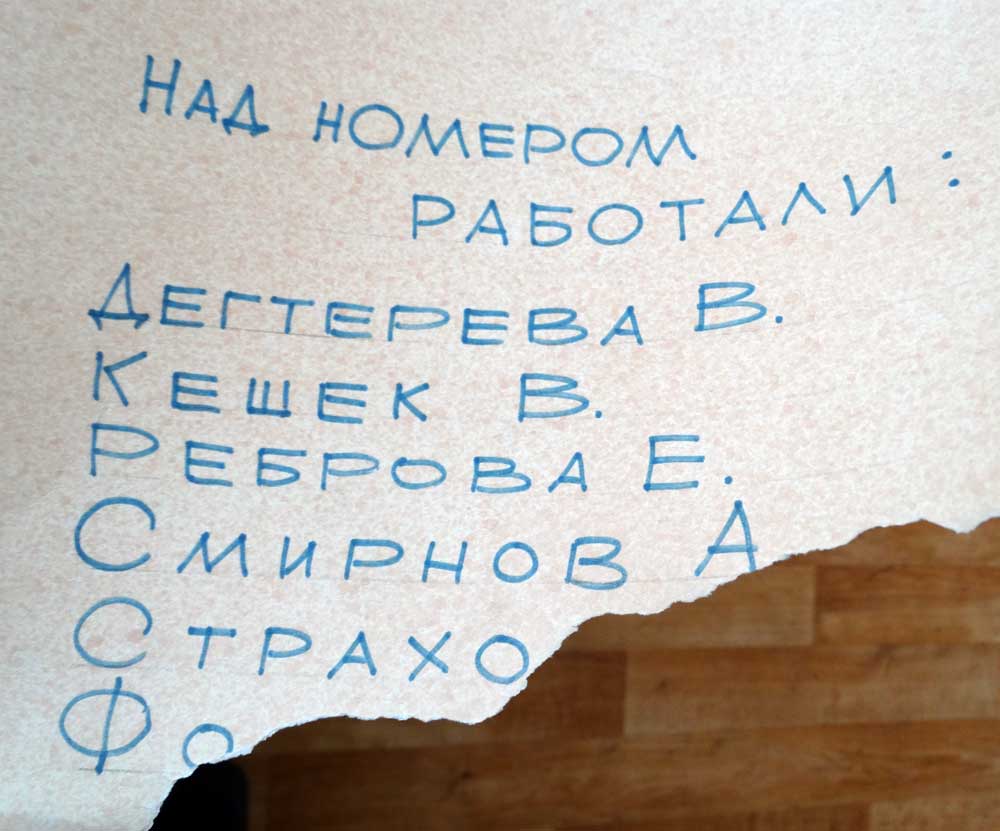 Над номером
работали:
Дегтерева В.
Кешек В.
Реброва Е.
Смирнов А
Страхо
Фо